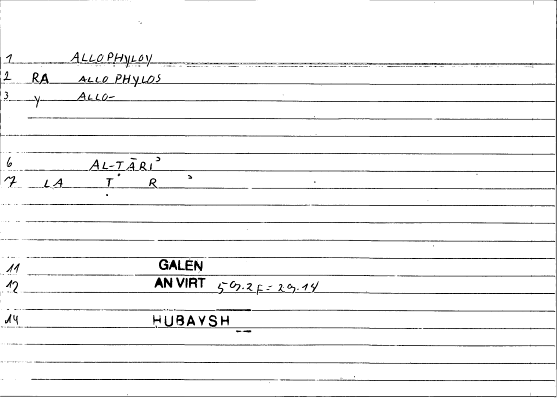 1 ALLOPHYLOY
2 RA ALLOPHYLOS
3 y ALLO-
6 AL-ṬĀRIʾ
7 LA Ṭ R ʾ
11 GALEN
12 AN VIRT
14 HUBAYSH